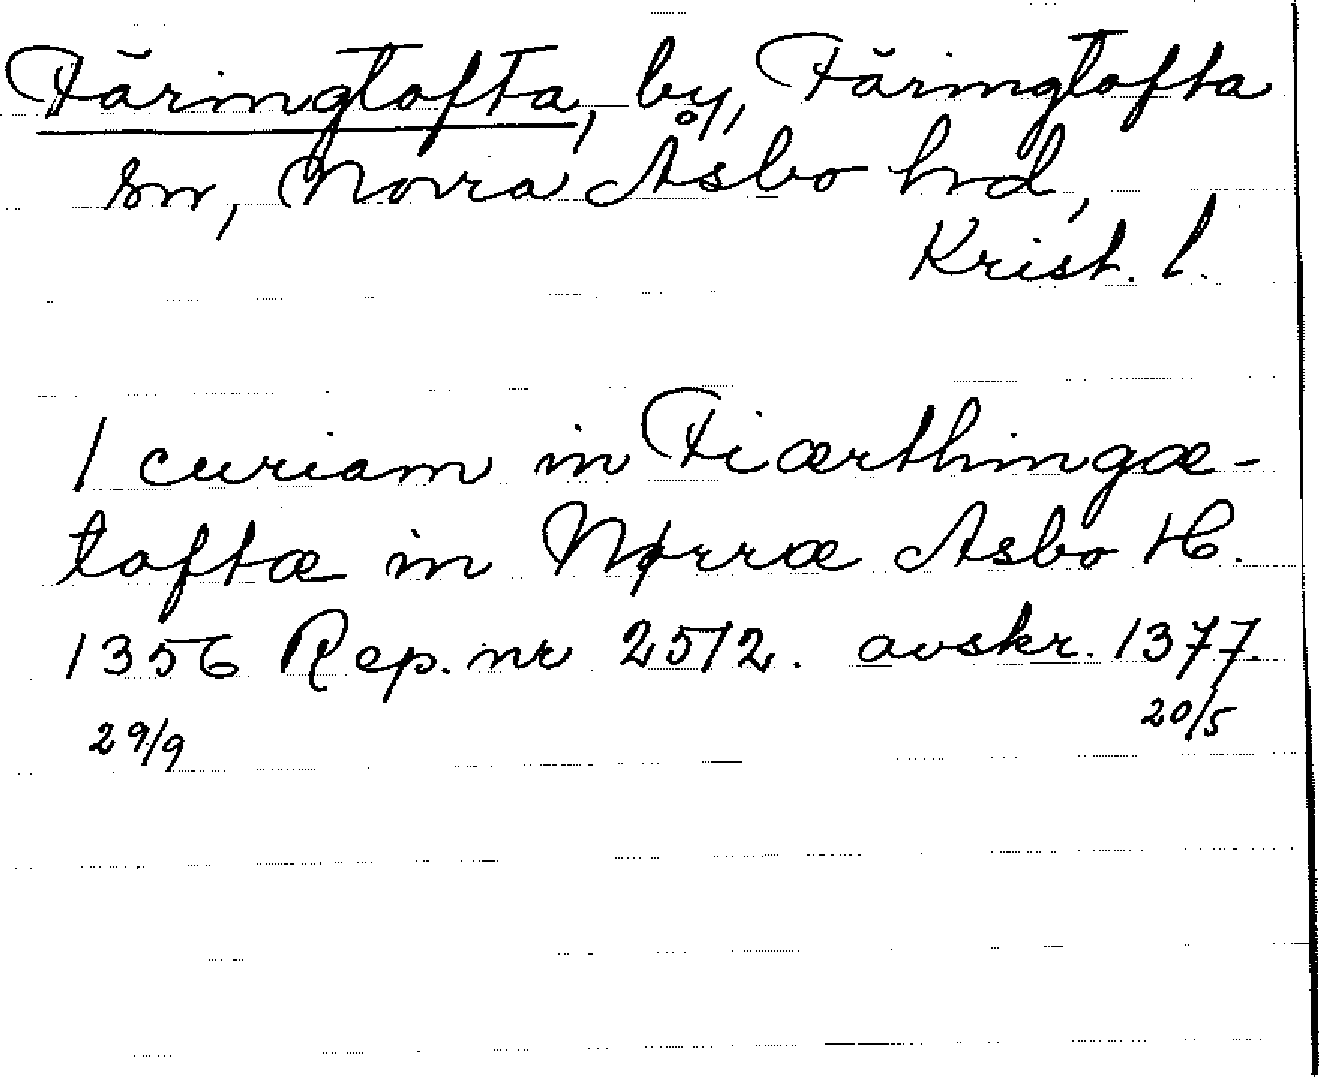 Färingtofta, by, Färingtofta
sn, Norra Åsbo hrd,
Krist. l.
1 curiam in Fiærthingæ-
toftæ in Nørræ Asbo H.
1356 Rep. nr 2572. avskr. 1377
29/9 20/5